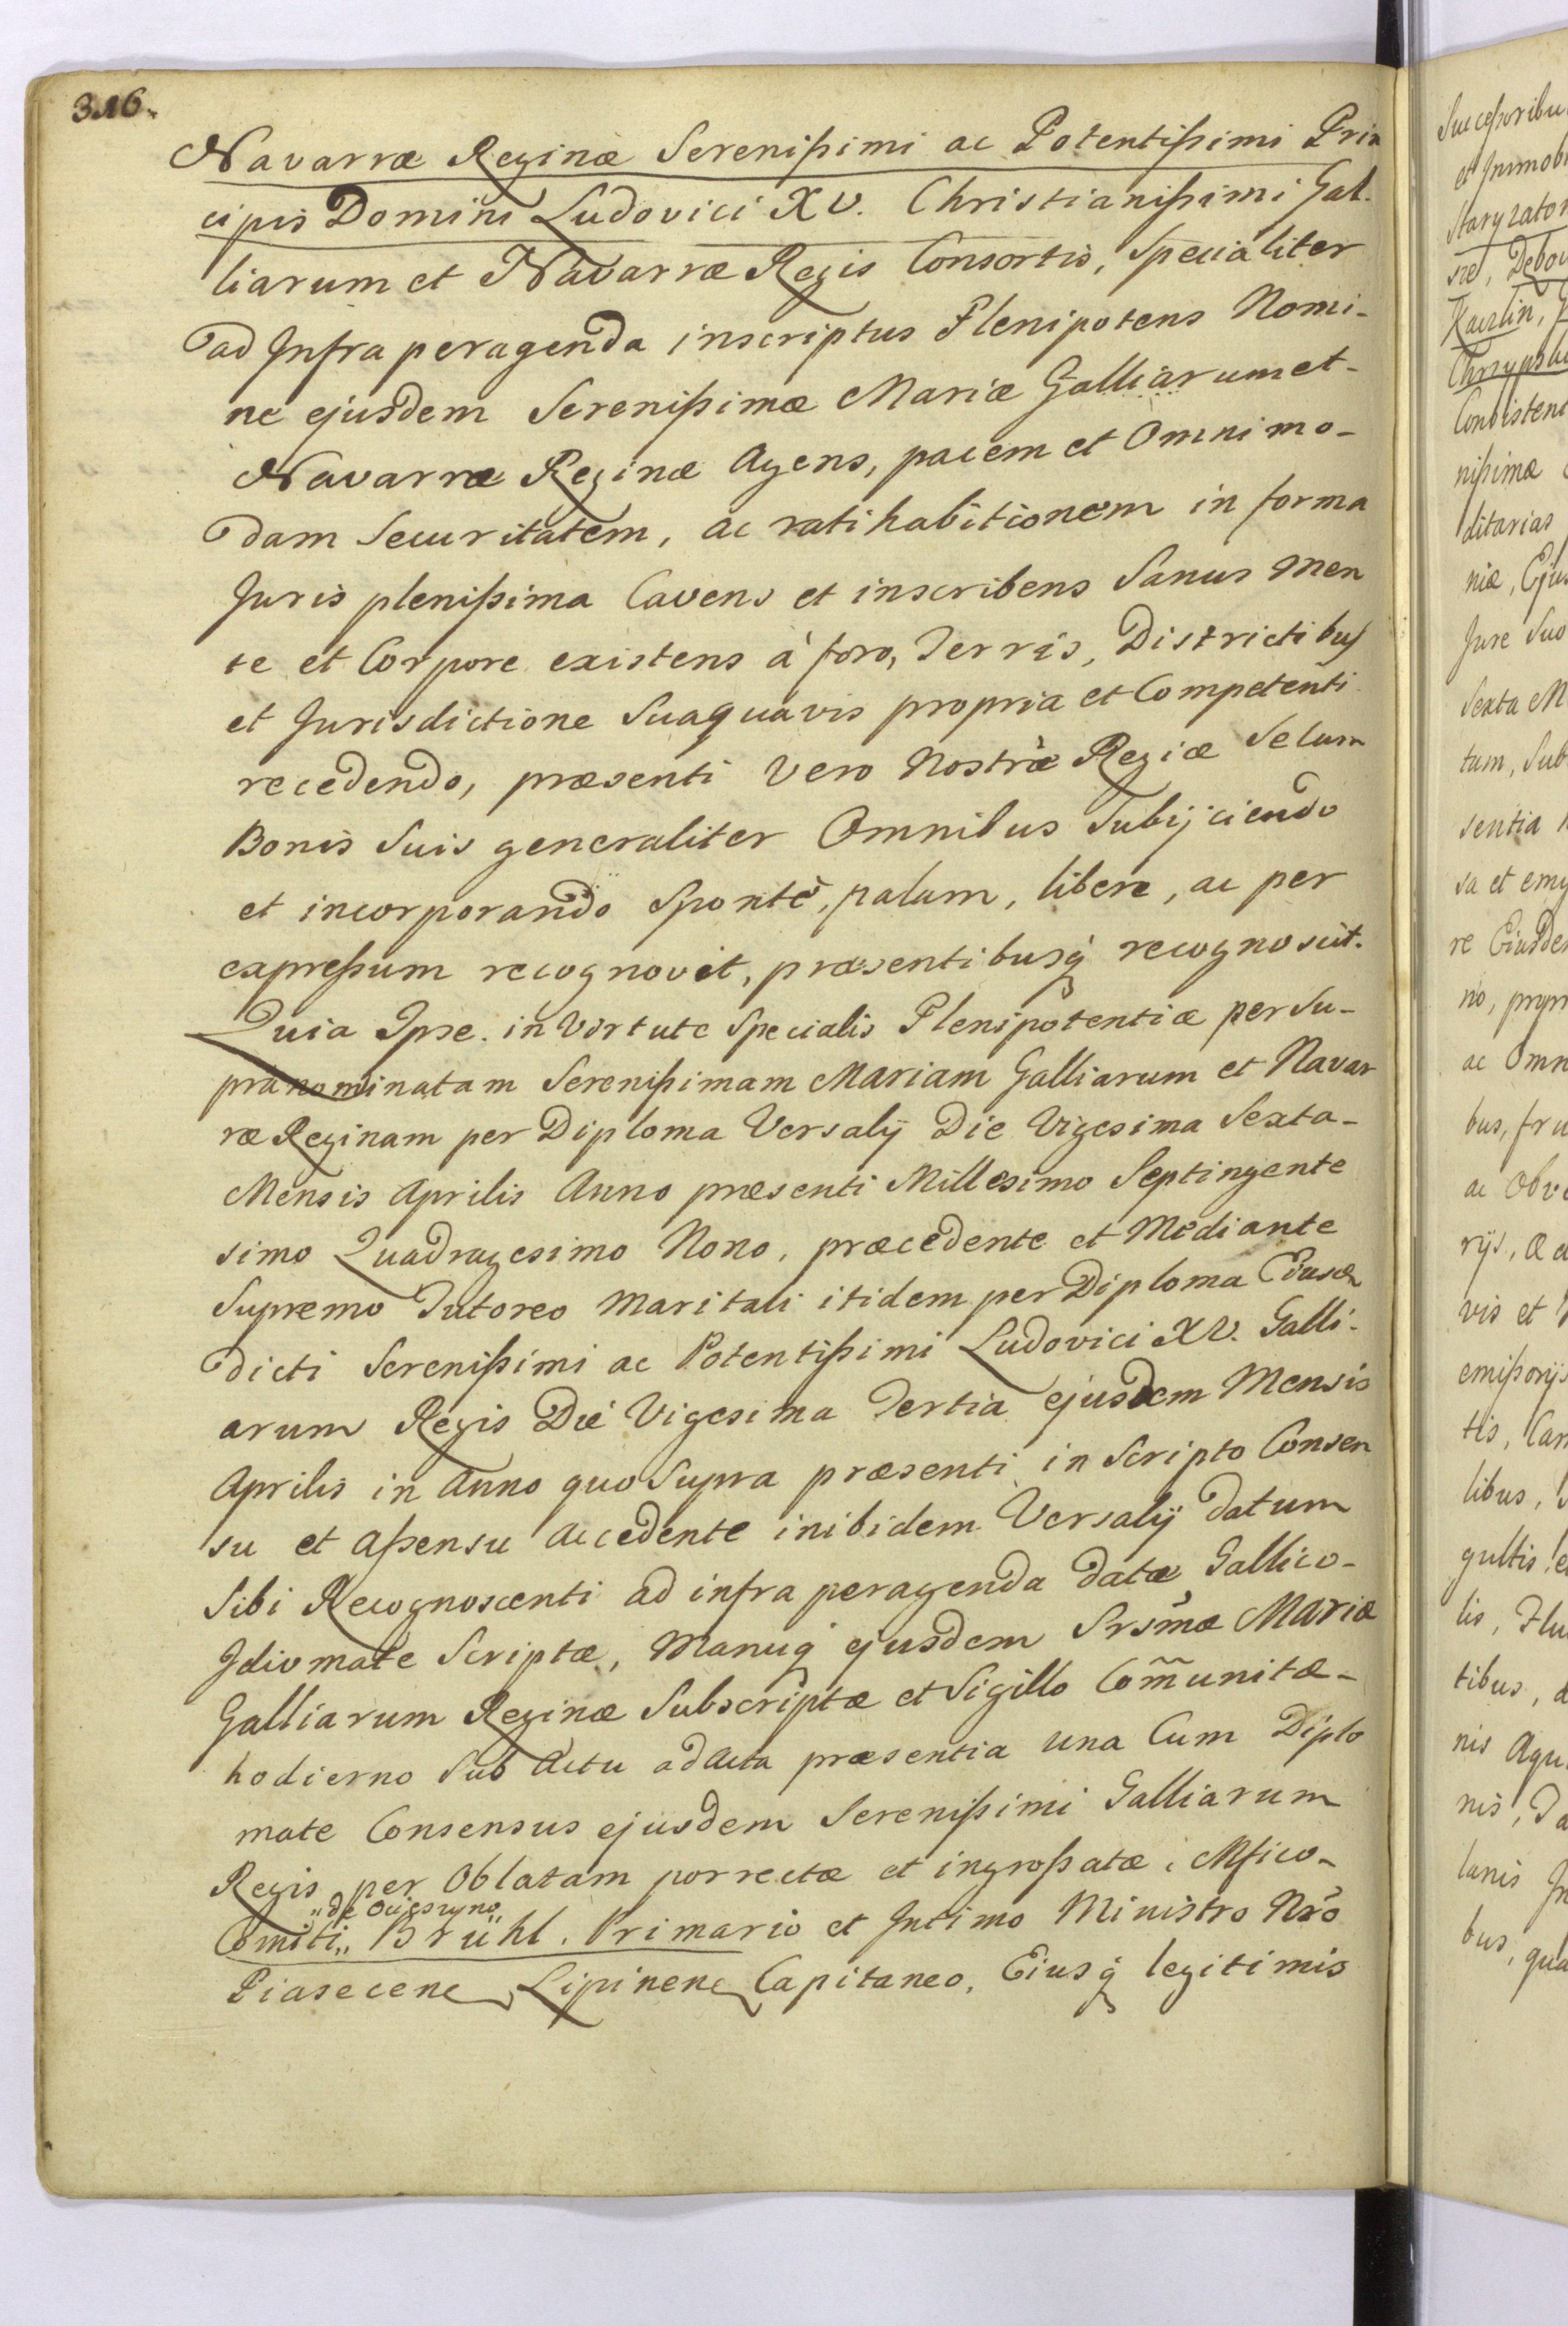 316.
Navarræ Reginæ Serenißimi ac Potentißimi Prin
cipis Domini Ludovici XV. Christianißimi Gal-
liarum et Navarræ Regis Consortis, Specialiter
ad Infra peragenda inscriptus Plenipotens Nomi-
ne ejusdem Serenißimæ Mariæ Galliarum et-
Navarræ Reginæ Agens, pacem et Omnimo-
dam Securitatem, ac ratihabitionem in forma
Juris plenißima Cavens et inscribens Sanus Men
te et Corpore existens à foro, Terris, Districtibus
et Jurisdictione Suaquavis propria et Competenti
recedendo, præsenti Vero Nostræ Regiæ Se cum
Bonis Suis generaliter Omnibus Subijciendo
et incorporando Spontè, palam, libere, ac per
expreßum recognovit, præsentibusq̃ recognoscit.
Quia Ipse. in Virtute Specialis Plenipotentiæ per Su-
pranominatam Serenißimam Mariam Galliarum et Navar
ræ Reginam per Diploma Versalij Die Vigesima Sexta-
Mensis Aprilis Anno præsenti Millesimo Septingente
simo Quadragesimo Nono, præcedente et Mediante
Supremo Tutoreo Maritali itidem per Diploma
dicti Serenißimi ac Potentißimi Ludovici XV. Galli-
arum Regis Die Vigesima Tertia ejusdem Mensis
Aprilis in Anno quo Supra præsenti in Scripto Consen
su et aßensu accedente inibidem Versalij datum
Sibi Recognoscenti ad infra peragenda datæ Gallico-
Idiomate Scriptæ, Manuq̃ ejusdem Srsm̃æ Mariæ
Galliarum Reginæ Subscriptæ et Sigillo Com̃unitæ-
hodierno Sub Actu ad Acta præsentia una Cum Diplo
mate Consensus ejusdem Serenißimi Galliarum
Regis per Oblatam porrectæ et ingroßatæ, Mfico-
„de Ocieszyno„
Comiti„ Brühl. Primario et Intimo Ministro Nrõ
Piasecen Lipinen Capitaneo, Eiusq̃ legitimis
Succeßoribu
et Immobi
Staryzator
Kaczlin,
Consisten
nißimæ
ditarias
niæ, Ejus
Jure Suo
Sexta M
tum, Sub
sentia
sa et emp
re Eiusdem
no, propr
ac Omn
bus, fru
ac Obve
rijs, æ
vis et
emißorijs
tis, Can
libus,
gultis e
lis, Flu
tibus,
nis Aqu
nis,
lanis In
bus, qua